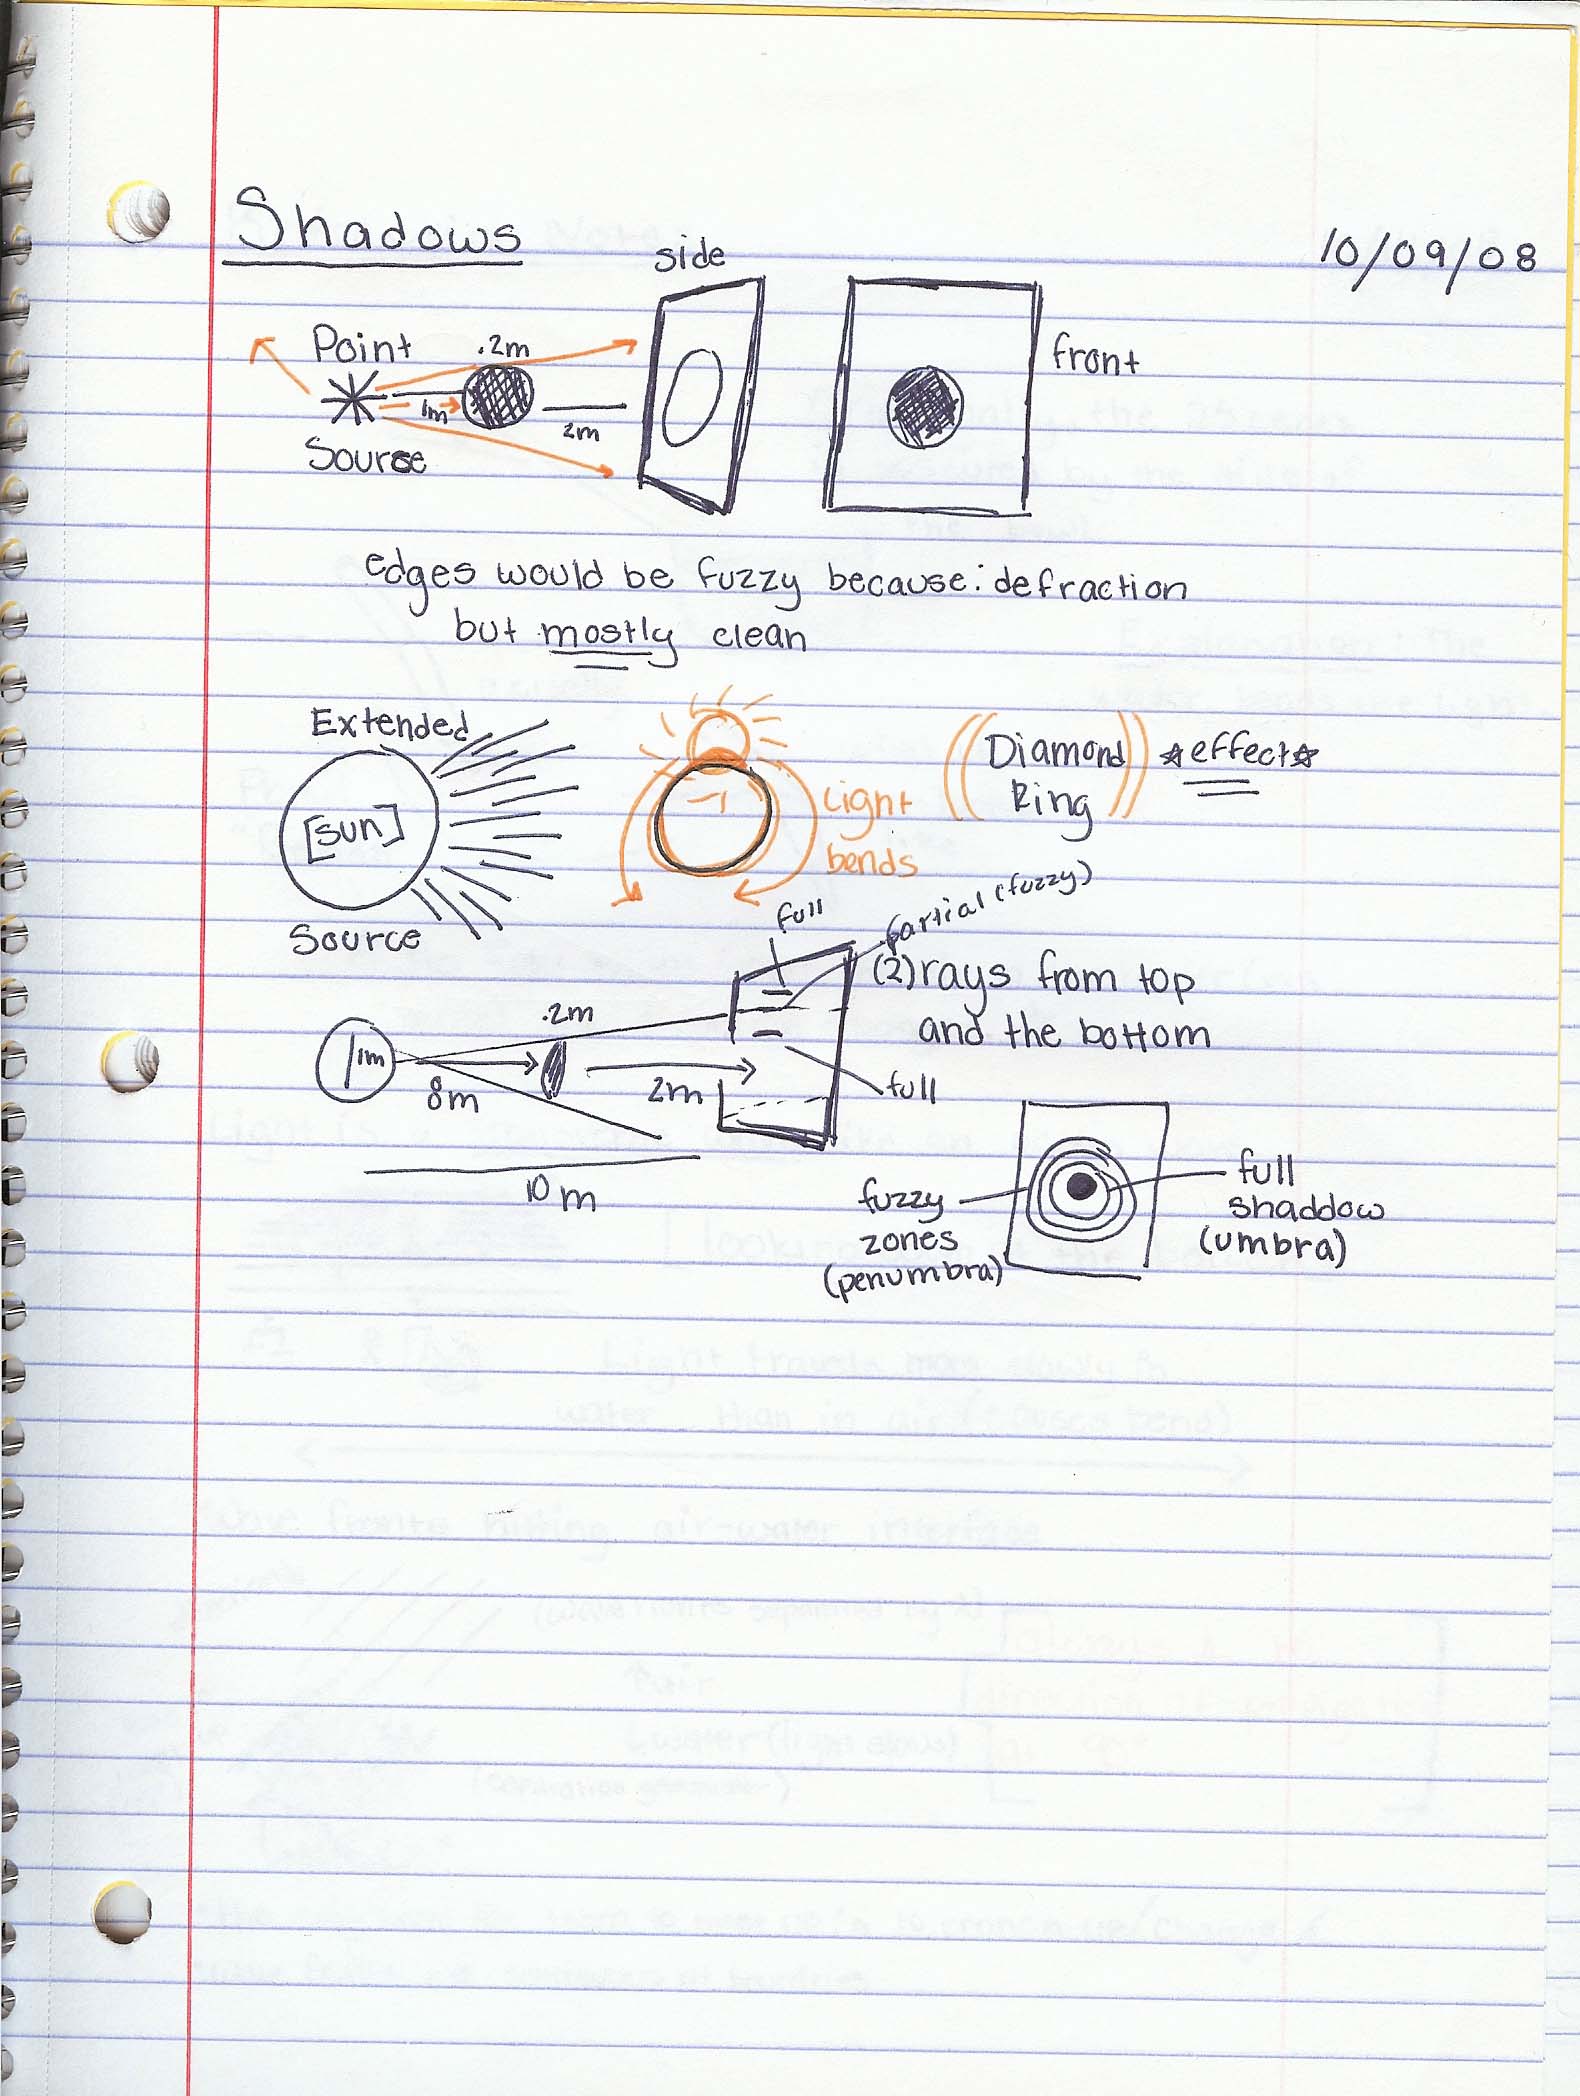 Shadows
10/09/08
side
Point
.2m
front
1m
2m
Source
edges would be fuzzy because: defraction
but mostly clean
Extended
Diamond ☆effect☆
Ring
[sun]
Light
bends
Source
full
partial (fuzzy)
(2) rays from top
and the bottom
.2m
1m
8m
2m
full
10m
fuzzy
zones
(penumbra)
full
shaddow
(umbra)